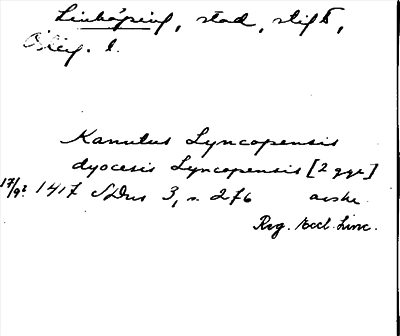 Linköping, stad, stift,
Östg. l.
Kanutus Lyncopensis
dyocesis Lyncopensis [2 ggr]
17/9? 1417 SDns 3, s. 276 avskr.
Reg. Eccl. Linc.